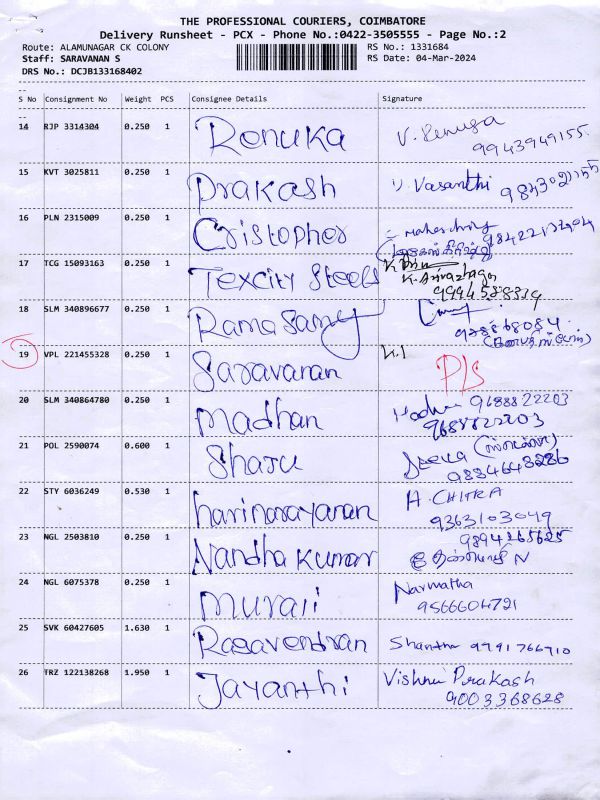 THE PROFESSIONAL COURIERS, COIMBATORE
Delivery Runsheet - PCX - Phone No.:0422-3505555 - Page No.:2
Route: ALAMUNAGAR CK COLONY RS No.: 1331684
Staff: SARAVANAN S RS Date: 04-Mar-2024
DRS No.: DCJB133168402
S No Consignment No Weight PCS Consignee Details Signature
14 RJP 3314304 0.250 1 Renuka V. Renuga
9943949155
15 KVT 3025811 0.250 1 Prakash V. Vasanthi
16 PLN 2315009 0.250 1 Cristopher
17 TCG 15093163 0.250 1 Texcity Steels
K. Arivazhagan
18 SLM 340896677 0.250 1 Ramasamy
19 VPL 221455328 0.250 1 Saravanan
20 SLM 340864780 0.250 1 Madhan 9688822203
9688822203
21 POL 2590074 0.600 1 Sharu
22 STY 6036249 0.530 1 harinarayanan A. CHITRA
9363103049
23 NGL 2503810 0.250 1 Nandha kumar 9894265625
24 NGL 6075378 0.250 1 murali Narmatha
9566604721
25 SVK 60427605 1.630 1 Ragavendran Shantha 9791766910
26 TRZ 122138268 1.950 1 Jayanthi Vishnu Prakash
9003368628